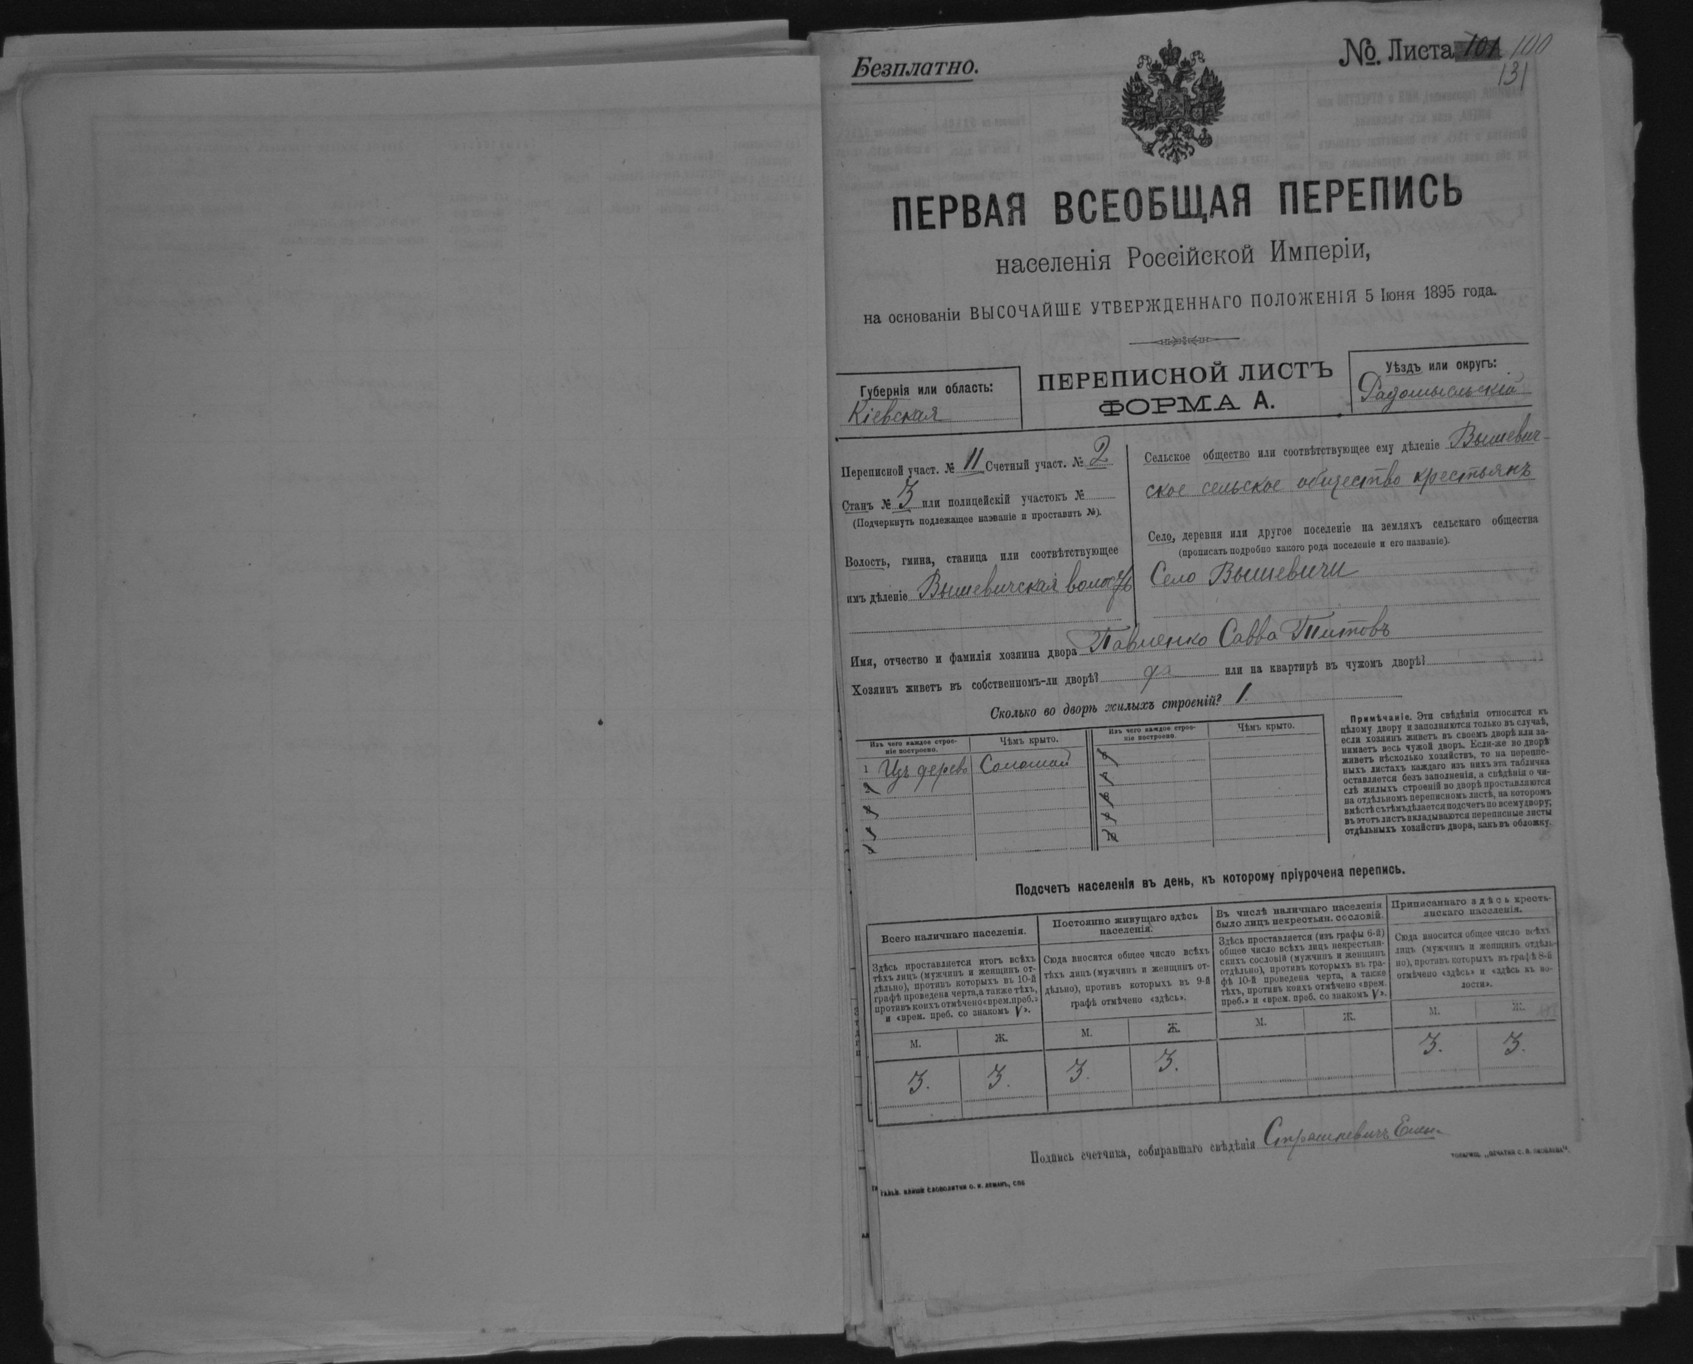 Безплатно.
№. Листа 101 100
131
ПЕРВАЯ ВСЕОБЩАЯ ПЕРЕПИСЬ
населенія Россійской Имперіи,
на основаніи ВЫСОЧАЙШЕ УТВЕРЖДЕННАГО ПОЛОЖЕНІЯ 5 Іюня 1895 года.
Губернія или область:
Кіевская
ПЕРЕПИСНОЙ ЛИСТЪ
ФОРМА А.
Уѣздъ или округъ:
Радомысльскій
Переписной участ. № 11 Счетный участ. № 2
Станъ № 3 или полицейскій участокъ №
(Подчеркнуть подлежащее названіе и проставить №).
Волость, гмина, станица или соотвѣтствующее
имъ дѣленіе Вышевичская волость
Сельское общество или соотвѣтствующее ему дѣленіе Вышевич-
ское сельское общество крестьянъ
Село, деревня или другое поселеніе на земляхъ сельскаго общества
(прописать подробно какого рода поселеніе и его названіе).
Село Вышевичи
Имя, отчество и фамилія хозяина двора Павленко Савва Титовъ
Хозяинъ живетъ въ собственномъ-ли дворѣ? да или на квартирѣ въ чужомъ дворѣ?
Сколько во дворѣ жилыхъ строеній? 1.
Изъ чего каждое строе-
ніе построено.
Чѣмъ крыто.
Изъ чего каждое строе-
ніе построено.
Чѣмъ крыто.
1 Изъ дерева Соломой
Примѣчаніе. Эти свѣдѣнія относятся къ
цѣлому двору и заполняются только въ случаѣ,
если хозяинъ живетъ въ своемъ дворѣ или за-
нимаетъ весь чужой дворъ. Если-же во дворѣ
живетъ нѣсколько хозяйствъ, то на перепис-
ныхъ листахъ каждаго изъ нихъ эта табличка
оставляется безъ заполненія, а свѣдѣнія о чи-
слѣ жилыхъ строеній во дворѣ проставляются
на отдѣльномъ переписномъ листѣ, на которомъ
вмѣстѣ съ тѣмъ дѣлается подсчетъ по всему двору;
въ этотъ листъ вкладываются переписные листы
отдѣльныхъ хозяйствъ двора, какъ въ обложку.
Подсчетъ населенія въ день, къ которому пріурочена перепись.
Всего наличнаго населенія.
Здѣсь проставляется итогъ всѣхъ
тѣхъ лицъ (мужчинъ и женщинъ от-
дѣльно), противъ которыхъ въ 10-й
графѣ проведена черта, а также тѣхъ,
противъ коихъ отмѣчено «врем. преб.»
и «врем. преб. со знакомъ V».
М. Ж.
3. 3.
Постоянно живущаго здѣсь
населенія.
Сюда вносится общее число всѣхъ
тѣхъ лицъ (мужчинъ и женщинъ от-
дѣльно), противъ которыхъ въ 9-й
графѣ отмѣчено «здѣсь».
М. Ж.
3. 3.
Въ числѣ наличнаго населенія
было лицъ некрестьян. сословій.
Здѣсь проставляется (изъ графы 6-й)
общее число всѣхъ лицъ некрестьян-
скихъ сословій (мужчинъ и женщинъ
отдѣльно), противъ которыхъ въ гра-
фѣ 10-й проведена черта, а также
тѣхъ, противъ коихъ отмѣчено «врем.
преб.» и «врем. преб. со знакомъ V».
М. Ж.
Приписаннаго здѣсь кресть-
янскаго населенія.
Сюда вносится общее число всѣхъ
лицъ (мужчинъ и женщинъ отдѣль-
но), противъ которыхъ въ графѣ 8-й
отмѣчено «здѣсь» и «здѣсь къ во-
лости».
М. Ж.
3. 3.
Подпись счетчика, собиравшаго свѣдѣнія